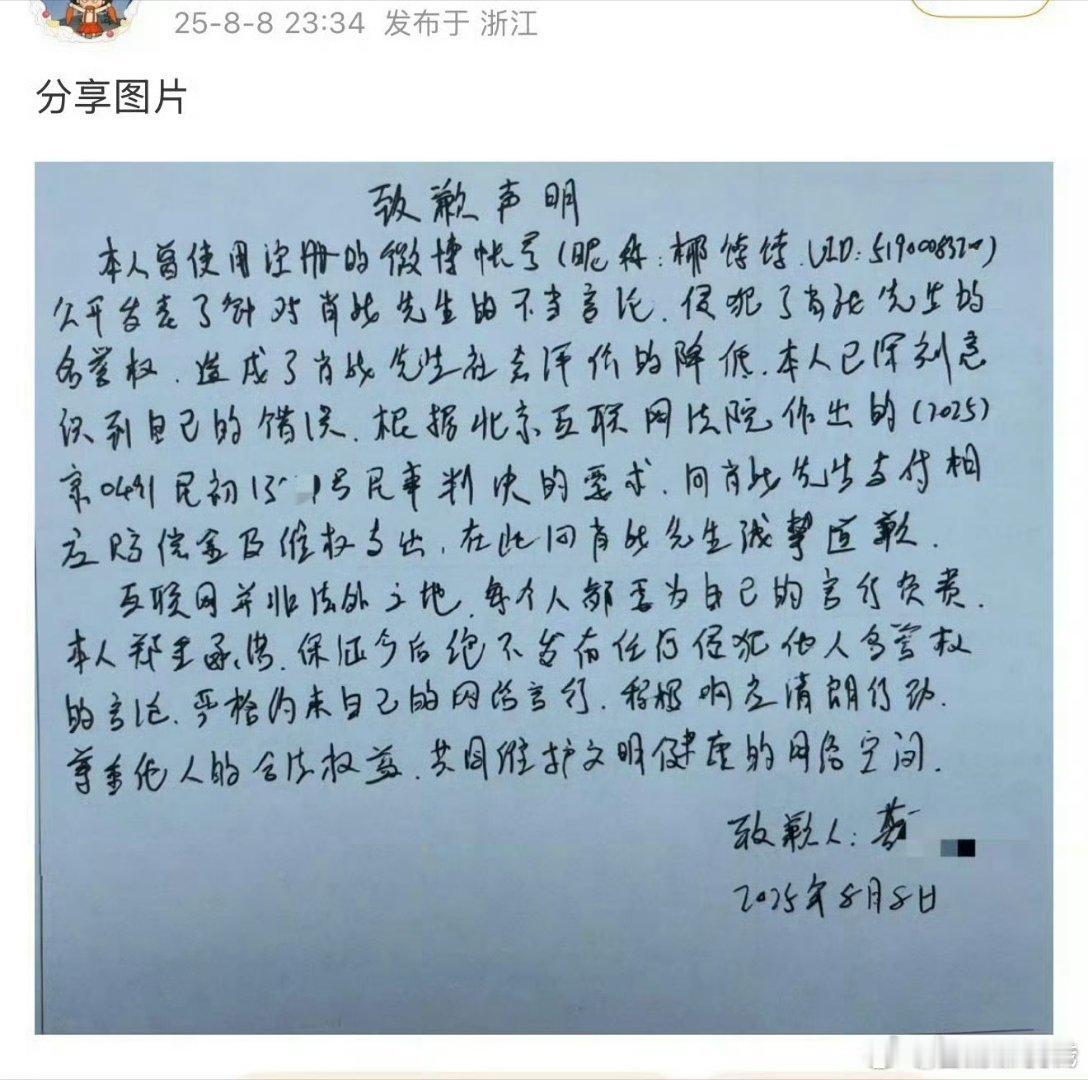 25-8-8 23:34 发布于 浙江
分享图片
致歉声明
本人曾使用注册的微博帐号(昵称:椰饽饽.UID:
公开发表了针对肖战先生的不当言论.侵犯了肖战先生的
名誉权.造成了肖战先生社会评价的降低.本人已深刻意
识到自己的错误.根据北京互联网法院作出的(2025)
京0491民初15 号民事判决的要求.向肖战先生支付相
应赔偿金及维权支出,在此向肖战先生诚挚道歉.
互联网并非法外之地.每个人都要为自己的言行负责.
本人郑重承诺.保证今后绝不发布任何侵犯他人名誉权
的言论.严格约束自己的网络言行.积极响应清朗行动.
尊重他人的合法权益.共同维护文明健康的网络空间.
致歉人:
2025年8月8日